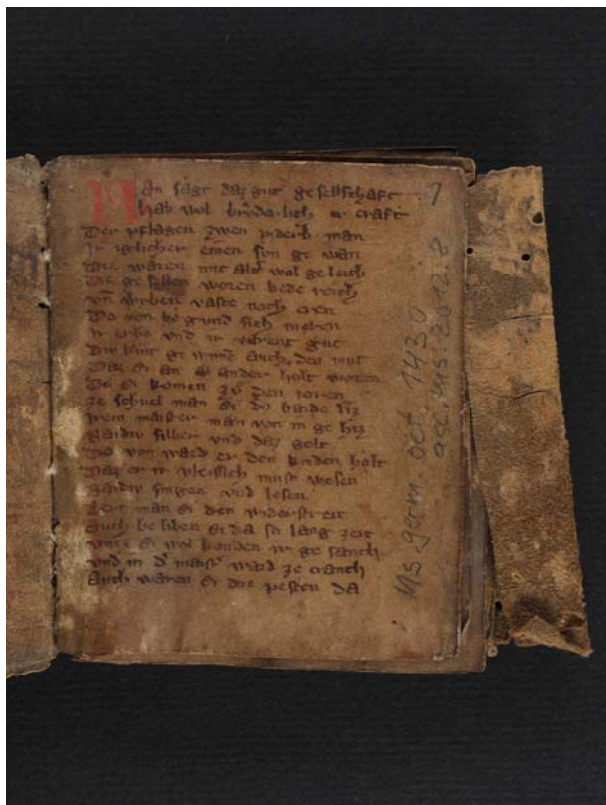 Man sagt daz gut geselschaft
hab wol bruderlich er craft
Der pflagen zwen piderb man
Ir iglicher einen sun ge wan
Die waren mit ald wol geleich
Die gesellen woren bede reich
vnd wurben vaste noch eren
Do von be gund sich meren
ir vnd ir gut
Die kint ge wunnen auch den mut
Daz si an ander holt woren
Do si komen zu den ioren
ze schul man si do beide hiz
irem maister man von in ge hiz
silber vnd daz golt
Do von ward er den kinden holt
Daz er ir vleissich must wesen
singen vnd lesen
man si den widerstreit
Auch be liben si da so lang zeit
vntz si wol konden ir ge sanch
vnd in d maist ward ze cranch
Auch waren si die pesten da
1
Ms. germ. oct. 1430
acc. ms. 2012. 8